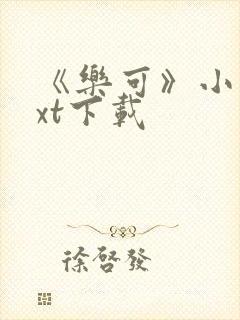 《樂可》小
xt下載
徐啓發